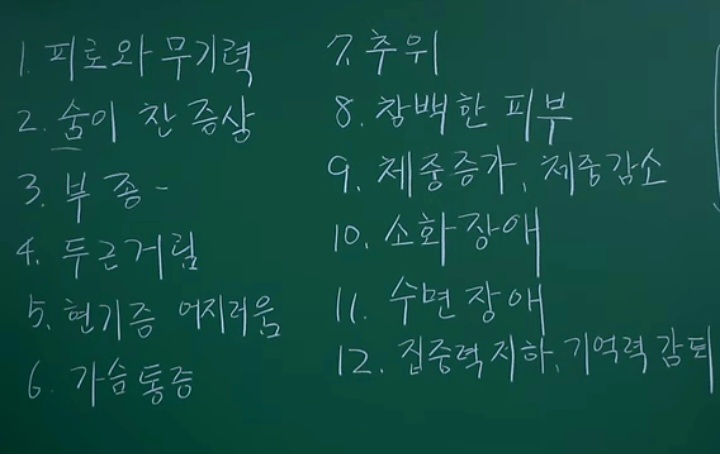 1. 피로와 무기력
2. 숨이 찬 증상
3. 부종-
4. 두근거림
5. 현기증 어지러움
6. 가슴통증
7. 추위
8. 창백한 피부
9. 체중증가, 체중감소
10. 소화장애
11. 수면장애
12. 집중력저하, 기억력감퇴